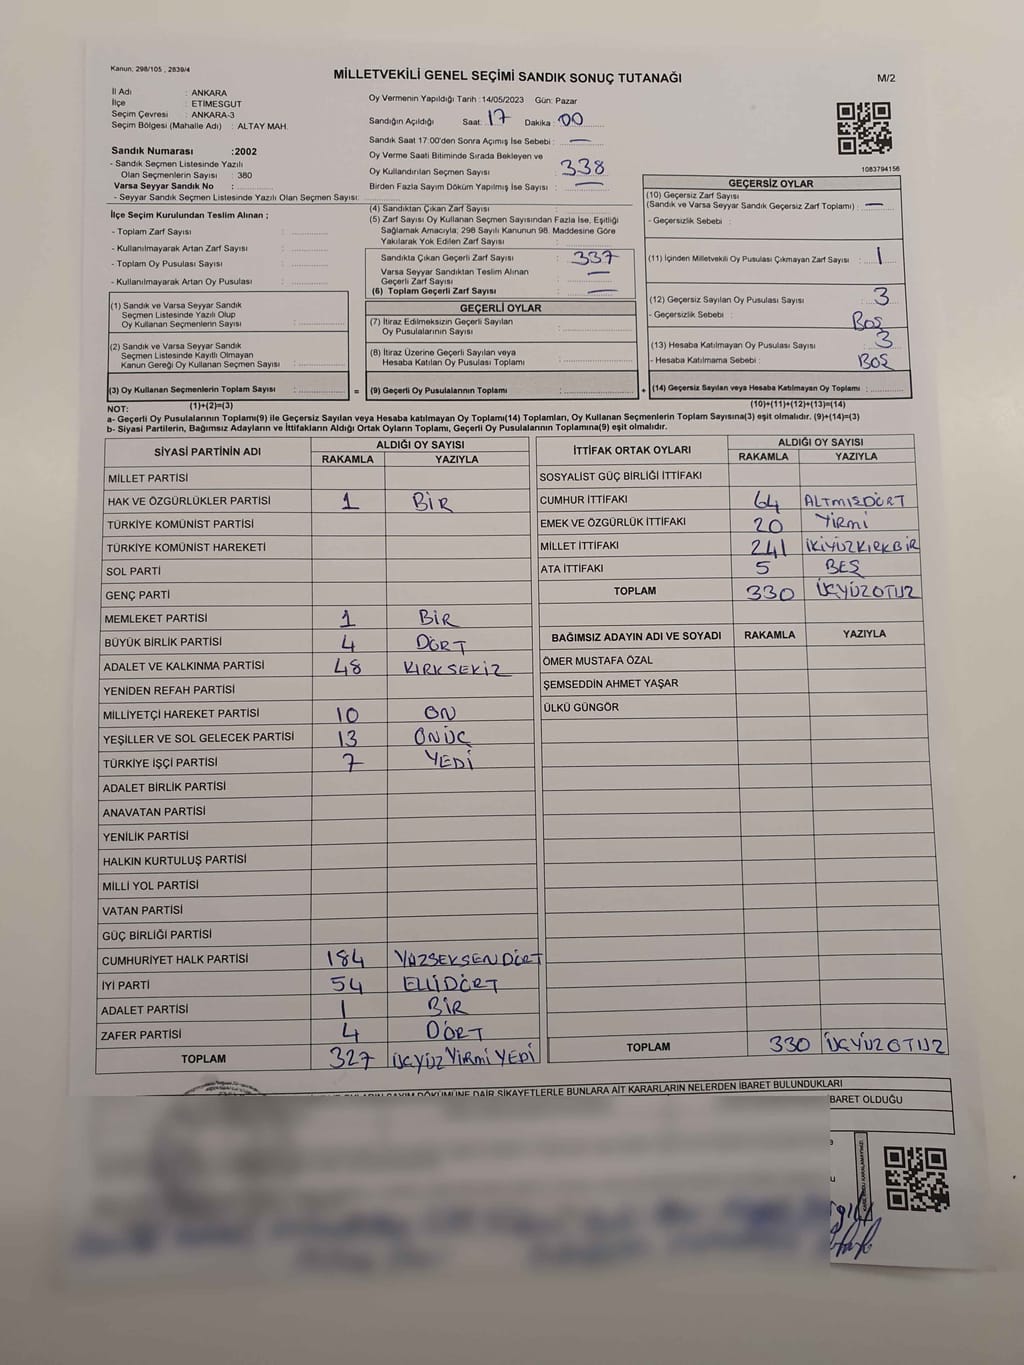 Kanun, 298/105 , 2839/4
MİLLETVEKİLİ GENEL SEÇİMİ SANDIK SONUÇ TUTANAĞI
M/2
İl Adı : ANKARA
İlçe : ETİMESGUT
Seçim Çevresi : ANKARA-3
Seçim Bölgesi (Mahalle Adı) : ALTAY MAH.
Sandık Numarası :2002
- Sandık Seçmen Listesinde Yazılı
Olan Seçmenlerin Sayısı : 380
Varsa Seyyar Sandık No :
- Seyyar Sandık Seçmen Listesinde Yazılı Olan Seçmen Sayısı:
Oy Vermenin Yapıldığı Tarih :14/05/2023 Gün: Pazar
Sandığın Açıldığı Saat: 17 Dakika: 00
Sandık Saat 17:00'den Sonra Açımış İse Sebebi : —
Oy Verme Saati Bitiminde Sırada Bekleyen ve
Oy Kullandırılan Seçmen Sayısı : 338
Birden Fazla Sayım Döküm Yapılmış İse Sayısı : —
1083794156
İlçe Seçim Kurulundan Teslim Alınan ;
- Toplam Zarf Sayısı :
- Kullanılmayarak Artan Zarf Sayısı :
- Toplam Oy Pusulası Sayısı :
- Kullanılmayarak Artan Oy Pusulası :
(1) Sandık ve Varsa Seyyar Sandık
Seçmen Listesinde Yazılı Olup
Oy Kullanan Seçmenlerin Sayısı :
(2) Sandık ve Varsa Seyyar Sandık
Seçmen Listesinde Kayıtlı Olmayan
Kanun Gereği Oy Kullanan Seçmen Sayısı :
(3) Oy Kullanan Seçmenlerin Toplam Sayısı :
(1)+(2)=(3)
(4) Sandıktan Çıkan Zarf Sayısı :
(5) Zarf Sayısı Oy Kullanan Seçmen Sayısından Fazla İse, Eşitliği
Sağlamak Amacıyla; 298 Sayılı Kanunun 98. Maddesine Göre
Yakılarak Yok Edilen Zarf Sayısı :
Sandıkta Çıkan Geçerli Zarf Sayısı : 337
Varsa Seyyar Sandıktan Teslim Alınan
Geçerli Zarf Sayısı : —
(6) Toplam Geçerli Zarf Sayısı : —
GEÇERLİ OYLAR
(7) İtiraz Edilmeksizin Geçerli Sayılan
Oy Pusulalarının Sayısı :
(8) İtiraz Üzerine Geçerli Sayılan veya
Hesaba Katılan Oy Pusulası Toplamı :
= (9) Geçerli Oy Pusulalarının Toplamı :
GEÇERSİZ OYLAR
(10) Geçersiz Zarf Sayısı
(Sandık ve Varsa Seyyar Sandık Geçersiz Zarf Toplamı) : —
- Geçersizlik Sebebi :
(11) İçinden Milletvekili Oy Pusulası Çıkmayan Zarf Sayısı : 1
(12) Geçersiz Sayılan Oy Pusulası Sayısı : 3
- Geçersizlik Sebebi : BOŞ
(13) Hesaba Katılmayan Oy Pusulası Sayısı : 3
- Hesaba Katılmama Sebebi : BOŞ
+ (14) Geçersiz Sayılan veya Hesaba Katılmayan Oy Toplamı :
(10)+(11)+(12)+(13)=(14)
NOT:
a- Geçerli Oy Pusulalarının Toplamı(9) ile Geçersiz Sayılan veya Hesaba katılmayan Oy Toplamı(14) Toplamları, Oy Kullanan Seçmenlerin Toplam Sayısına(3) eşit olmalıdır. (9)+(14)=(3)
b- Siyasi Partilerin, Bağımsız Adayların ve İttifakların Aldığı Ortak Oyların Toplamı, Geçerli Oy Pusulalarının Toplamına(9) eşit olmalıdır.
SİYASİ PARTİNİN ADI ALDIĞI OY SAYISI
RAKAMLA YAZIYLA
MİLLET PARTİSİ
HAK VE ÖZGÜRLÜKLER PARTİSİ 1 BİR
TÜRKİYE KOMÜNİST PARTİSİ
TÜRKİYE KOMÜNİST HAREKETİ
SOL PARTİ
GENÇ PARTİ
MEMLEKET PARTİSİ 1 BİR
BÜYÜK BİRLİK PARTİSİ 4 DÖRT
ADALET VE KALKINMA PARTİSİ 48 KIRKSEKİZ
YENİDEN REFAH PARTİSİ
MİLLİYETÇİ HAREKET PARTİSİ 10 ON
YEŞİLLER VE SOL GELECEK PARTİSİ 13 ONÜÇ
TÜRKİYE İŞÇİ PARTİSİ 7 YEDİ
ADALET BİRLİK PARTİSİ
ANAVATAN PARTİSİ
YENİLİK PARTİSİ
HALKIN KURTULUŞ PARTİSİ
MİLLİ YOL PARTİSİ
VATAN PARTİSİ
GÜÇ BİRLİĞİ PARTİSİ
CUMHURİYET HALK PARTİSİ 184 YÜZSEKSENDÖRT
İYİ PARTİ 54 ELLİDÖRT
ADALET PARTİSİ 1 BİR
ZAFER PARTİSİ 4 DÖRT
TOPLAM 327 ÜÇYÜZ YİRMİ YEDİ
İTTİFAK ORTAK OYLARI ALDIĞI OY SAYISI
RAKAMLA YAZIYLA
SOSYALİST GÜÇ BİRLİĞİ İTTİFAKI
CUMHUR İTTİFAKI 64 ALTMIŞDÖRT
EMEK VE ÖZGÜRLÜK İTTİFAKI 20 YİRMİ
MİLLET İTTİFAKI 241 İKİYÜZKIRKBİR
ATA İTTİFAKI 5 BEŞ
TOPLAM 330 ÜÇYÜZOTUZ
BAĞIMSIZ ADAYIN ADI VE SOYADI RAKAMLA YAZIYLA
ÖMER MUSTAFA ÖZAL
ŞEMSEDDİN AHMET YAŞAR
ÜLKÜ GÜNGÖR
TOPLAM 330 ÜÇYÜZOTUZ
DÖKÜMÜNE DAİR ŞİKAYETLERLE BUNLARA AİT KARARLARIN NELERDEN İBARET BULUNDUKLARI
BARET OLDUĞU